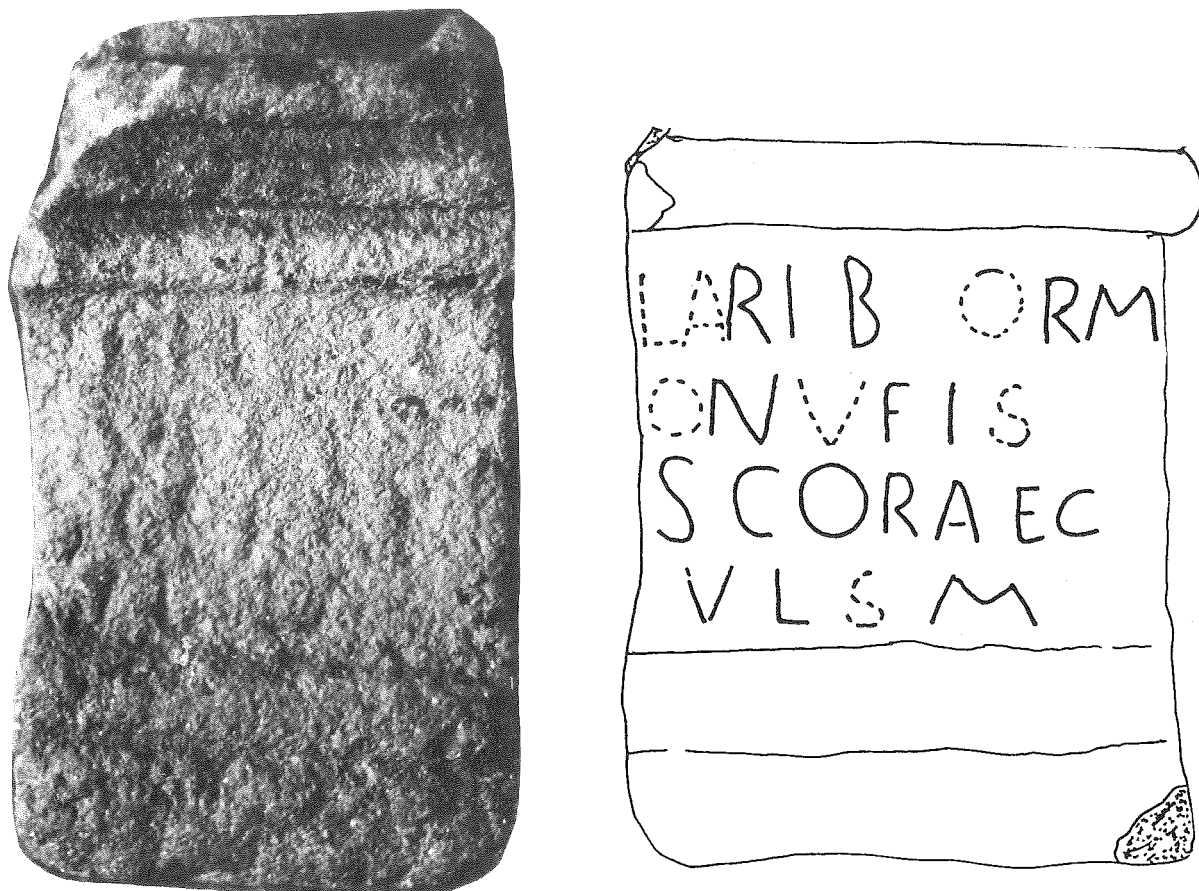 LARIB ORM
ONVFIS
SCORAEC
VLSM